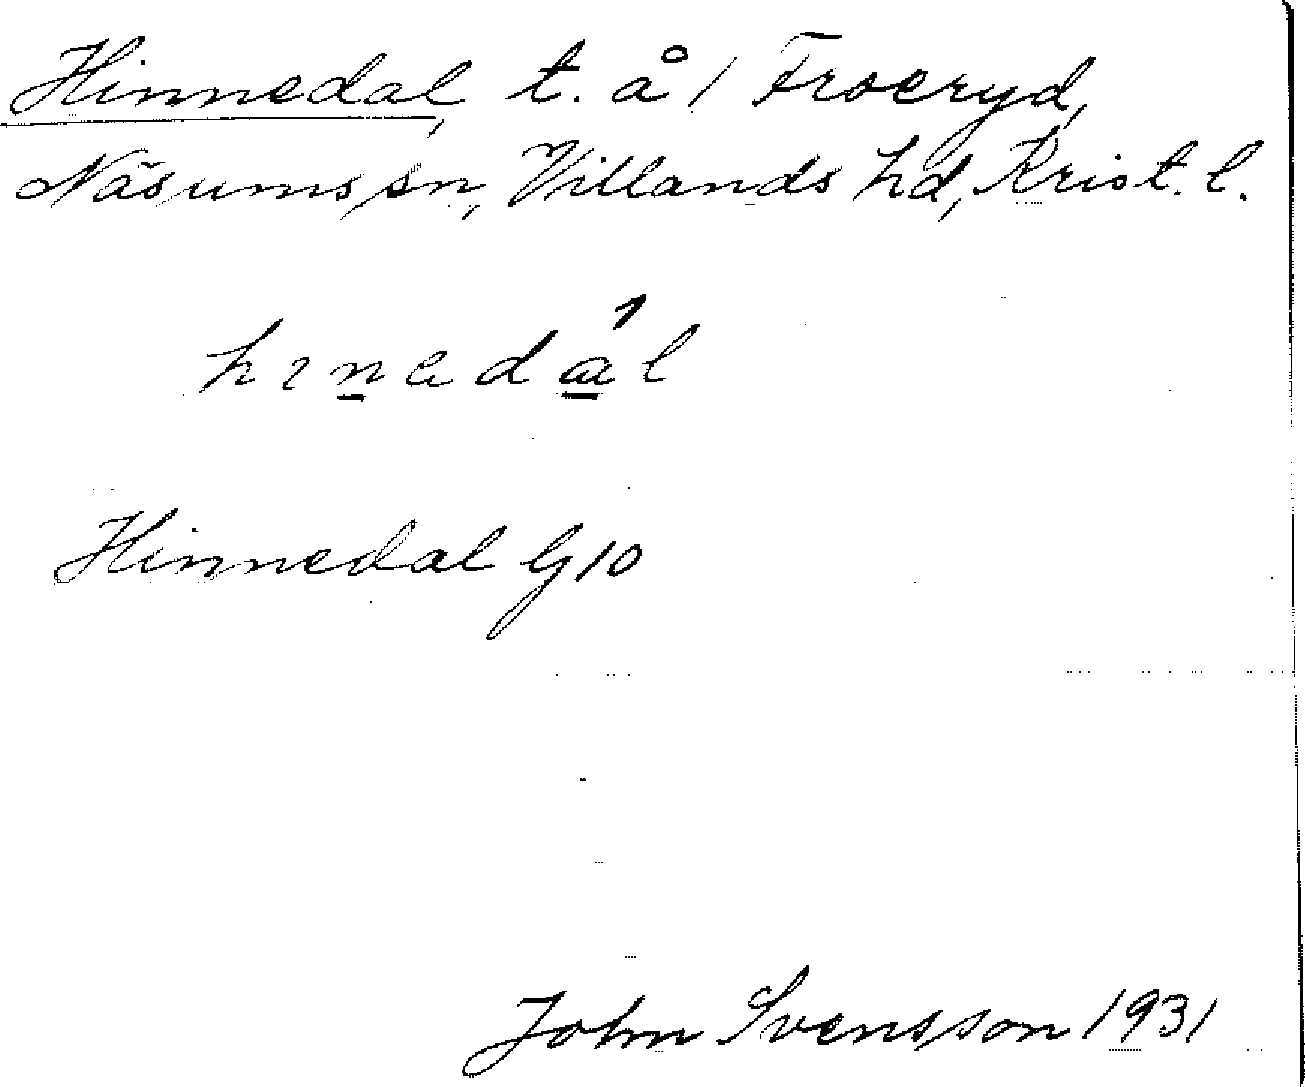 Hinnedal, t. å 1 Froeryd,
Näsums sn, Villands hd, Krist. l.
hɪnedál
Hinnedal G 10
John Svensson 1931